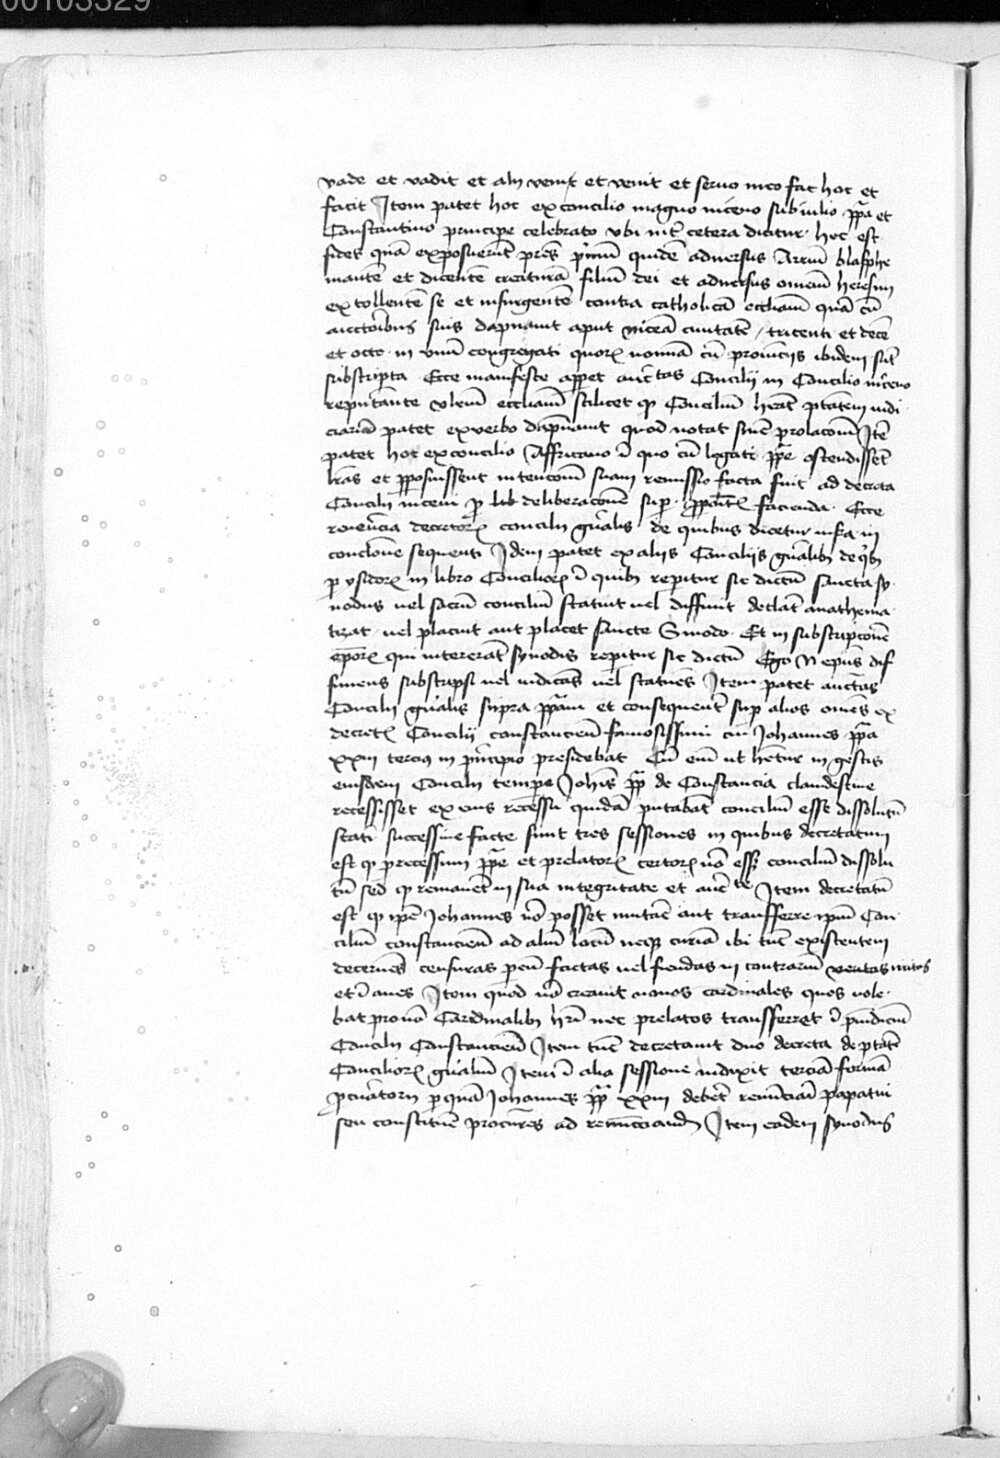 00103329
vade et vadit et alii venit et venit et servo meo fac hoc et
facit Item patet hoc ex concilio magno niceno sub iulio ppa et
Constantino principe celebrato vbi int cetera dicitur hoc est
fides quā exposuerūt pres primū quidē adversus Arrium blasphe
mantē et dicentē creaturā filiū dei et adversus omnem heresim
extollentē se et insurgentē contra catholicā eccliam quā cū
auctoribus suis dapnavit aput niceā civitatē tricenti et decē
et octo in vnū congregati quorū nomina cū provinciis ibidem sūt
subscripta Ecce manifeste apparet auctas Concilij in Concilio niceno
reputante vlem eccliam scilicet q Concilium heat ptatem iudi
ciariā patet ex verbo dapnavit quod notat snie prolacionē Itē
patet hoc ex concilio Affricano ī quo cū legati ppe ostendisset
lras et pposuissent intencionē suam remissio facta fuit ad decreta
Concilii niceni p deliberacione sup facienda Ecce
reverēcia decretorū concilii gnralis de quibus dicetur infra in
conclone sequenti Idem patet ex aliis Conciliis gnralibus de qbus
p ysidorū in libro Conciliorū ī quibus reperitur sic dictū sancta sy
nodus vel sacrū concilium statuit vel diffinit declat anathema
tizat vel placuit aut placet sancte Sinodo Et in subscripcione
eporū qui intererāt synodis reperitur sic dictū Ego N epus dif
finiens subscripsi vel iudicās vel statuēs Item patet auctas
Concilii gnralis supra ppam et consequent sup alios omes ex
decretis Concilij constancien famosissimi cui Johannes ppa
xxiii tercius in principio presidebat Cū eni ut hetur in gestis
eiusdem Concilii tempe Johis pp de Constancia clandestine
recessisset ex eius recessu quidā putabāt concilium esse dissolutū
statī successive facte sunt tres sessiones in quibus decretatum
est q p recessum ppe et prelatorū certorū nō esset concilium dissolu
tū sed q remanet in sua integritate et aucte Item decretatū
est q ipe Johannes nō posset mutare aut transfferre ipm Con
cilium constancien ad aliū locū neque curiā ibi tūc existentem
decernēs censuras p eū factas vel fiendas in contrariū irritas
et īanes Item quod nō crearet novos cardinales quos vole
bat pro novis Cardinalibus hri nec prelatos transfferret ī preiudiciū
Concilii Constancien Item tūc decretavit duo decreta de ptate
Conciliorū gnralium Item ī alia sessione induxit terciā formā
pcuratorii p quā Johannes pp xxiii deberet renūciare papatui
seu constituere procures ad renūciandū Item eadem synodus